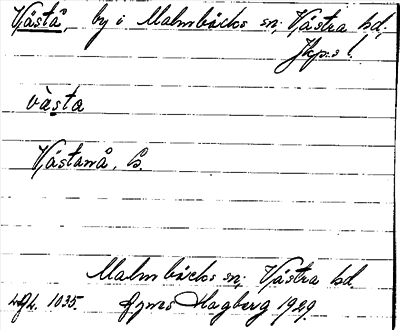 Västå, by i Malmbäcks sn, Västra hd,
Jkp:s l.
vàsta
Västanå, B.
Malmbäcks sn, Västra hd.
1035. Hagberg 1929.